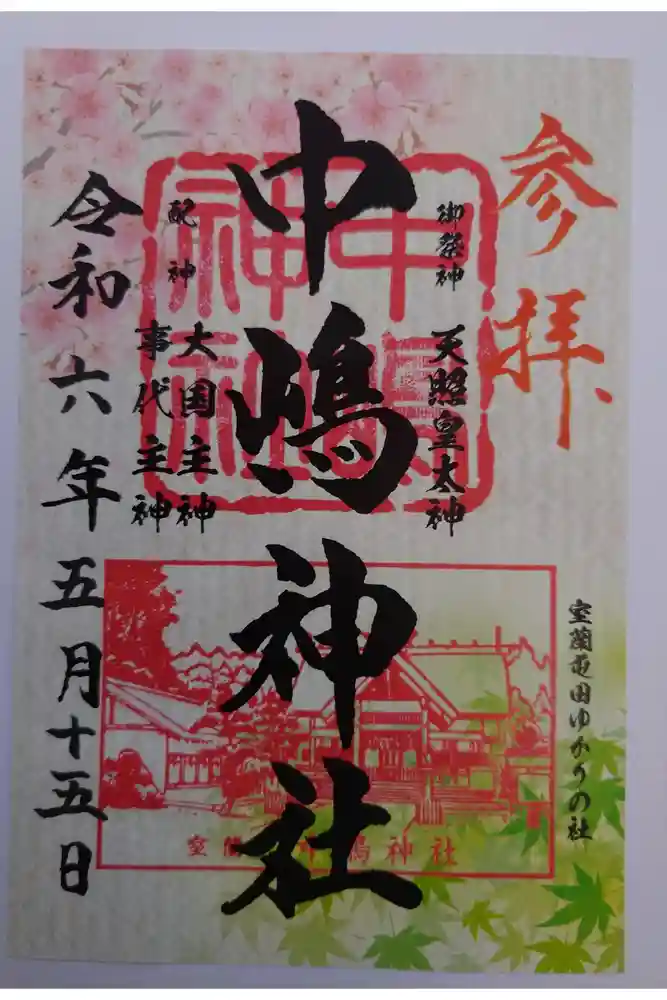 参拝
室蘭屯田ゆかりの社
御祭神
天照皇大神
中嶋神社
中嶋神社
配神
大国主神
事代主神
令和六年五月十五日
室蘭 中嶋神社